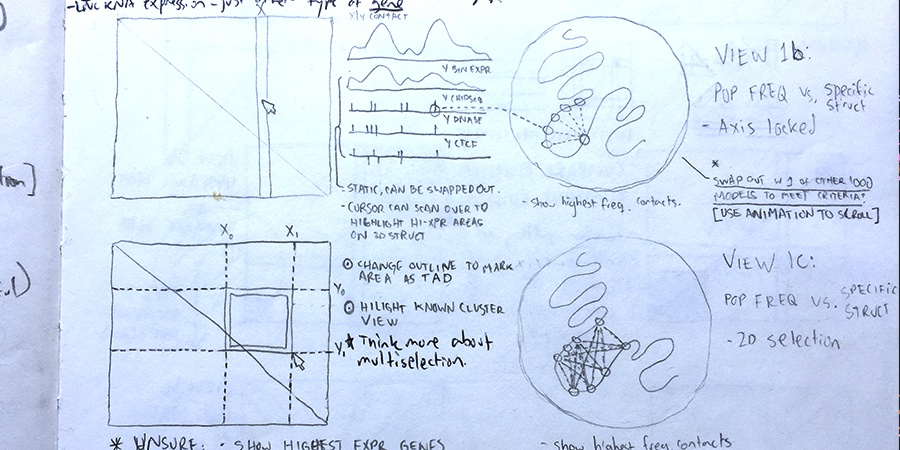 - LNCRNA EXPRESSION - just type of gene
X
X/Y CONTACT
Y BIN EXPR
Y CHIPSEQ
Y DNASE
Y CTCF
- STATIC, CAN BE SWAPPED OUT.
- CURSOR CAN SCAN OVER TO
HIGHLIGHT HI-XPR AREAS
ON 3D STRUCT
- show highest freq. contacts.
VIEW 1b:
POP FREQ VS. SPECIFIC
STRUCT
- Axis locked
*
SWAP OUT W 1 OF OTHER 1000
MODELS TO MEET CRITERIA?
[USE ANIMATION TO SCROLL]
X0 X1
Y0
Y1
CHANGE OUTLINE TO MARK
AREA AS TAD
HILIGHT KNOWN CLUSTER
VIEW
* Think more about
multiselection.
VIEW 1C:
POP FREQ VS. SPECIFIC
STRUCT
- 2D selection
* UNSURE: - SHOW HIGHEST EXPR GENES
- show highest freq contacts